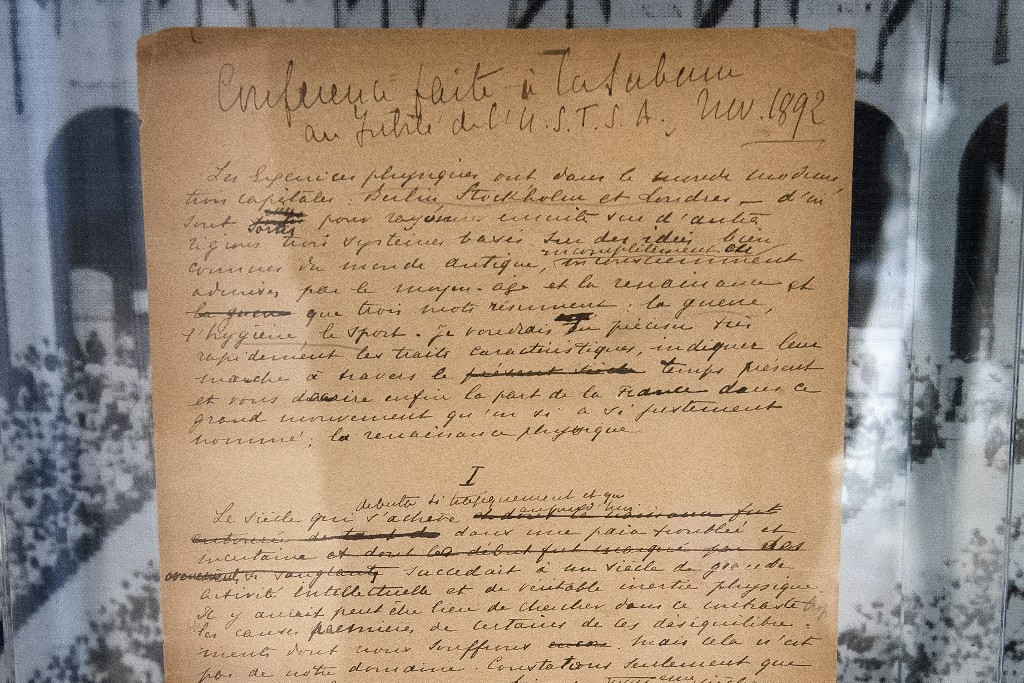 Conférence faite à la Sorbonne
au Jubilé de l'U.S.F.S.A. Nov. 1892
Les Exercices physiques ont dans le monde moderne,
trois capitales: Berlin, Stockholm et Londres — d'où
sont sortis pour rayonner ensuite sur d'autres
régions trois systèmes basés sur des idées bien
incomplètement ou
connues du monde antique, inconsciemment
admises par le moyen-age et la renaissance et
la guerre que trois mots résument: la guerre,
l'hygiène, le sport. Je voudrais en préciser très
rapidement les traits caractéristiques, indiquer leur
marche à travers le présent siècle temps présent
et vous dire enfin la part de la France dans ce
grand mouvement qu'on a si justement
nommé: la renaissance physique
I
débuta si tragiquement et qui
aujourd'hui
Le siècle qui s'achève et dont la naissance fut
entourée de tant de dans une paix troublée et
incertaine et dont le début fut marqué par des
si sanglants succédait à un siècle de grande
activité intellectuelle et de véritable inertie physique.
Il y aurait peut être lieu de chercher dans ce contraste trop
les causes premières de certains de les déséquilibre-
ments dont nous souffrons. Mais cela n'est
pas de notre domaine. Constatons seulement que